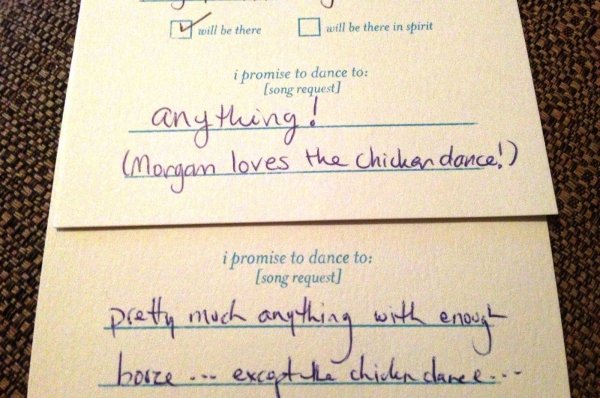 will be there will be there in spirit
i promise to dance to:
[song request]
anything!
(Morgan loves the chicken dance!)
i promise to dance to:
[song request]
pretty much anything with enough
booze ... except the chicken dance...